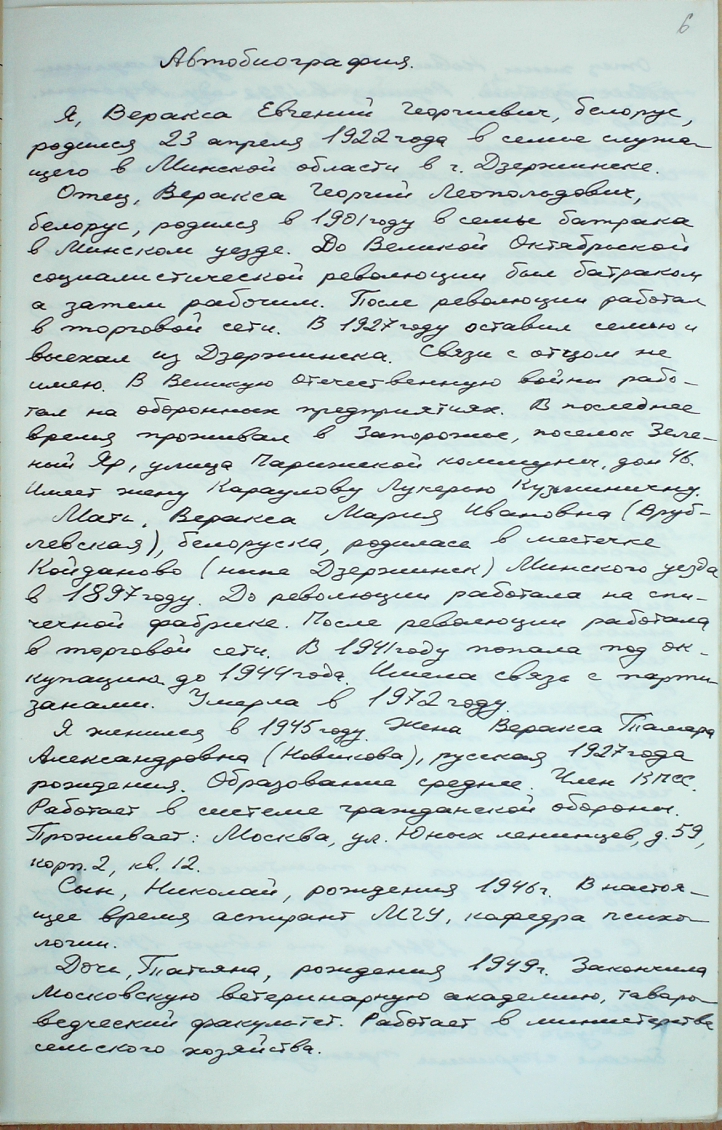 6
Автобиография.
Я, Веракса Евгений Георгиевич, белорус,
родился 23 апреля 1922 года в семье служа-
щего в Минской области в г. Дзержинске.
Отец, Веракса Георгий Леопольдович,
белорус, родился в 1901 году в семье батрака
в Минском уезде. До Великой Октябрьской
социалистической революции был батраком
а затем рабочим. После революции работал
в торговой сети. В 1927 году оставил семью и
выехал из Дзержинска. Связи с отцом не
имею. В Великую отечественную войну рабо-
тал на оборонных предприятиях. В последнее
время проживал в Запорожье, поселок Зеле-
ный Яр, улица Парижской коммуны, дом 46.
Имеет жену Караулову Лукерью Кузьминичну.
Мать, Веракса Мария Ивановна (Вруб-
левская), белоруска, родилась в местечке
Койданово (ныне Дзержинск) Минского уезда
в 1897 году. До революции работала на спи-
чечной фабрике. После революции работала
в торговой сети. В 1941 году попала под ок-
купацию до 1944 года. Имела связь с парти
занами. Умерла в 1972 году.
Я женился в 1945 году. Жена Веракса Тамара
Александровна (Новикова), русская 1927 года
рождения. Образование среднее. Член КПСС.
Работает в системе гражданской обороны.
Проживает: Москва, ул. Юных ленинцев, д. 59,
корп. 2, кв. 12.
Сын, Николай, рождения 1946 г. В настоя-
щее время аспирант МГУ, кафедра психо-
логии.
Дочь, Татьяна, рождения 1949 г. Закончила
Московскую ветеринарную академию, таваро-
ведческий факультет. Работает в министерстве
сельского хозяйства.